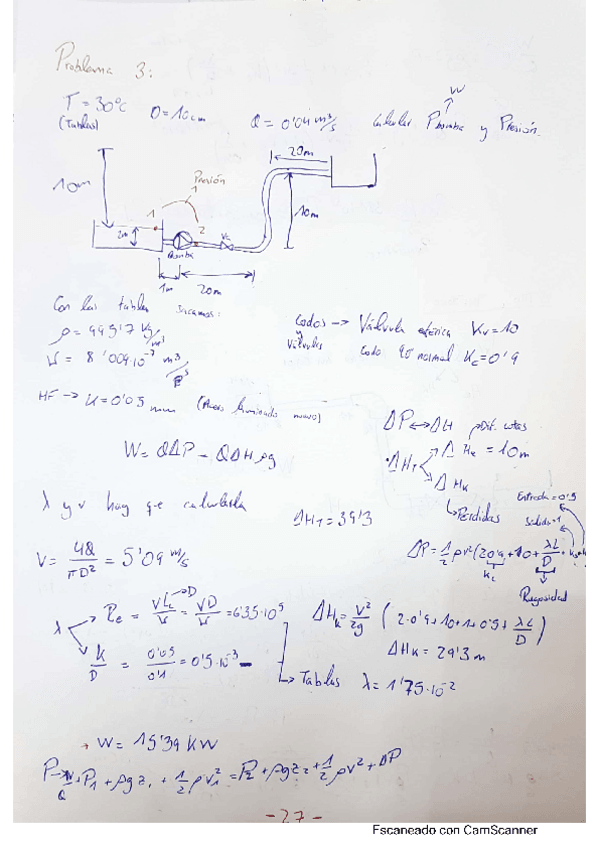 Problema 3:
T = 30ºC
(Tablas)
D = 10cm
Q = 0'04 m³/s
Calcular P bomba y Presión.
W
20m
10m
Presión
1
2
2m
10m
Bomba
1m
20m
Con las tablas sacamos:
ρ = 995'7 Kg/m³
ν = 8'009·10⁻⁷ m²/s
Codos y Válvulas → Válvula esférica Kv = 10
Codo 90 normal Kc = 0'9
HF → K = 0'05 mm (Acero laminado nuevo)
W = QΔP = QΔHρg
ΔP ↔ ΔH
Dif. cotas
ΔHT
ΔHz = 10m
ΔHK
Pérdidas
λ y v hay que calcularla
ΔHT = 39'3
Entrada = 0'5
Salida = 1
V = 4Q/πD² = 5'09 m/s
KL
Rugosidad
λ
Re = VL/ν = VD/ν = 6'35·10⁵
K/D = 0'05/0'1 = 0'5·10⁻³
ΔHK = V²/2g (2·0'9+10+1+0'5+ λL/D)
ΔHK = 29'3 m
Tablas λ = 1'75·10⁻²
W = 15'39 KW
P₁ + ρgz₁ + 1/2 ρv₁² = P₂ + ρgz₂ + 1/2 ρv² + ΔP
- 27 -
Escaneado con CamScanner